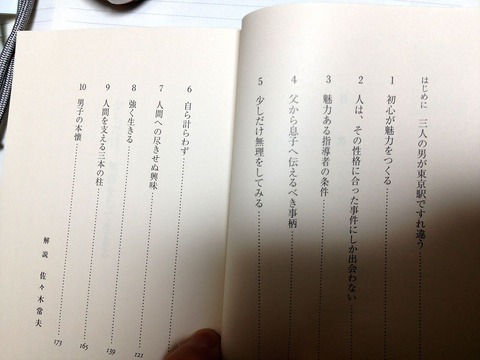 はじめに 三人の男が東京駅ですれ違う
1 初心が魅力をつくる
2 人は、その性格に合った事件にしか出会わない
3 魅力ある指導者の条件
4 父から息子へ伝えるべき事柄
5 少しだけ無理をしてみる
6 自ら計らわず
7 人間への尽きせぬ興味
8 強く生きる 121
9 人間を支える三本の柱 139
10 男子の本懐 165
解説 佐々木常夫 173